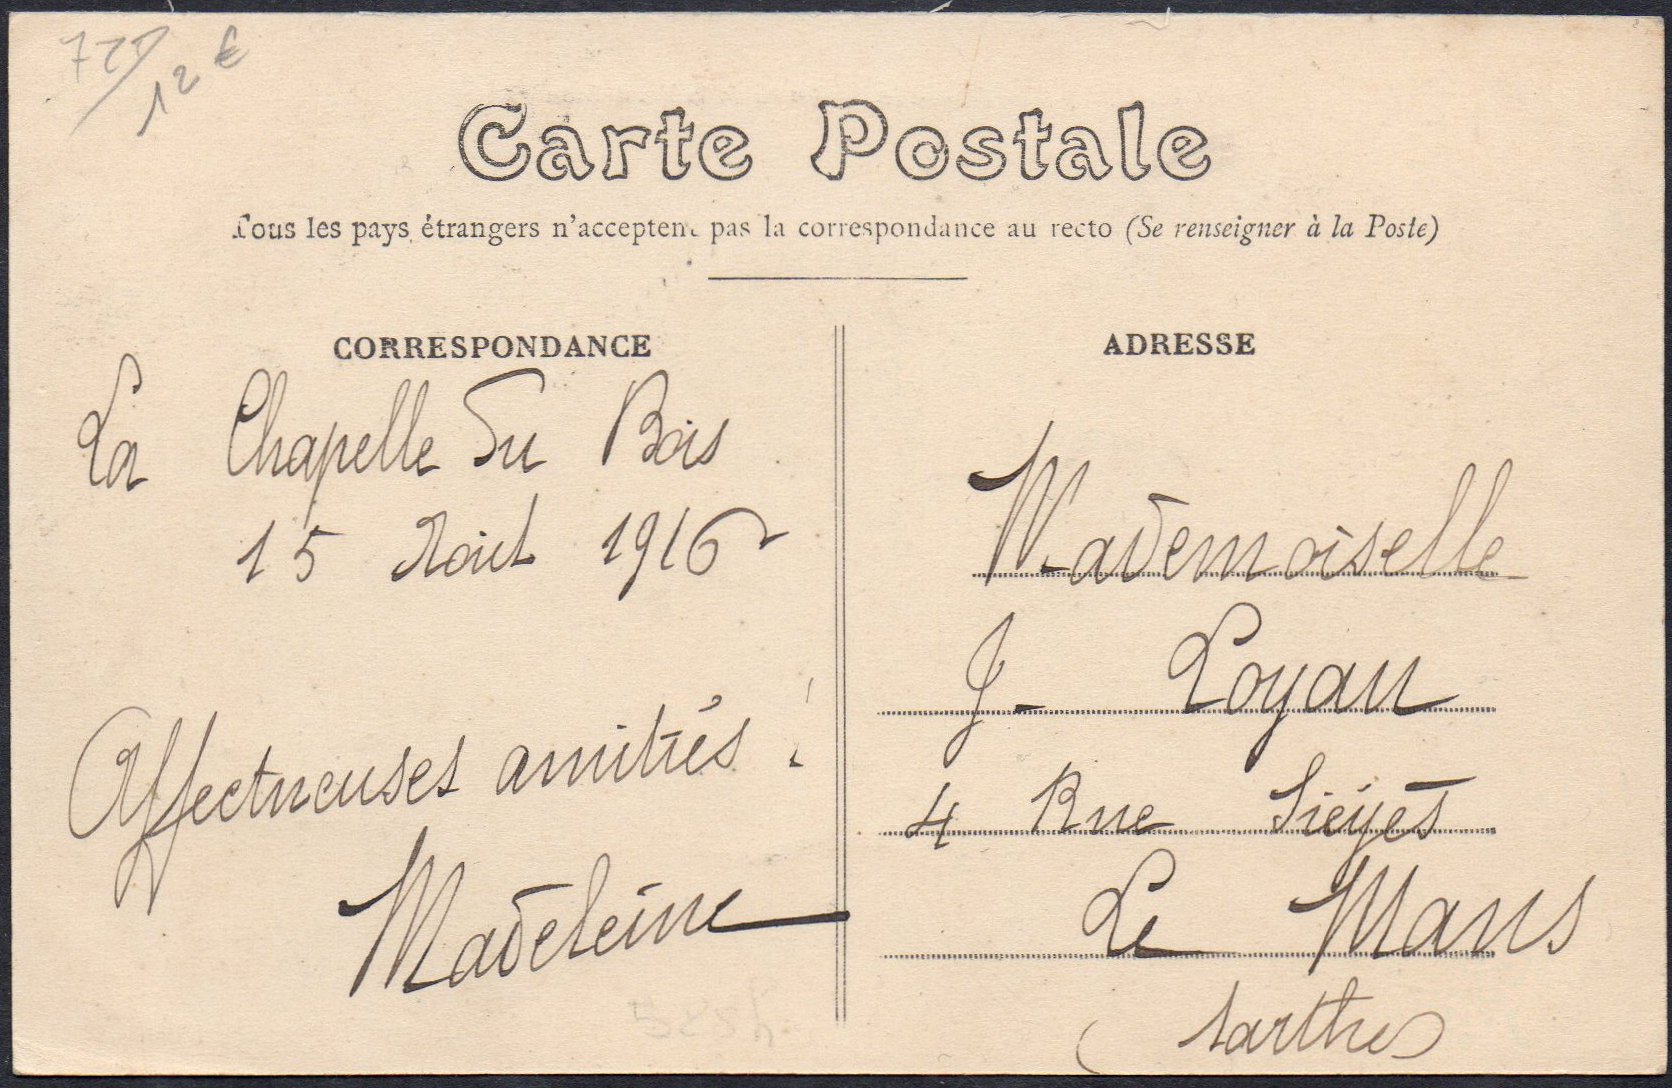 12 €
Carte Postale
Tous les pays étrangers n'acceptent pas la correspondance au recto (Se renseigner à la Poste)
CORRESPONDANCE
La Chapelle Du Bois
15 Août 1916
Affectueuses amitiés !
Madeleine
ADRESSE
Mademoiselle
J- Loyau
4 Rue Siéyès
Le Mans
(Sarthe)